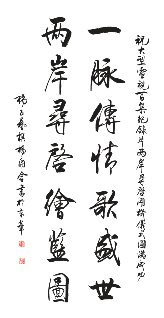 祝大型電視百集紀錄片兩岸尋啓開機儀式圓滿成功
一脈傳情歌盛世
兩岸尋啓繪藍圖